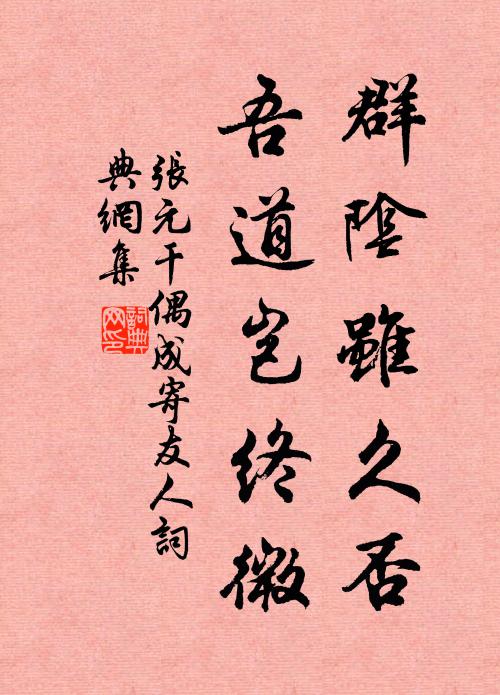 群陰雖久否
吾道豈終微
張元干偶成寄友人詞
典網集
詞典
网印